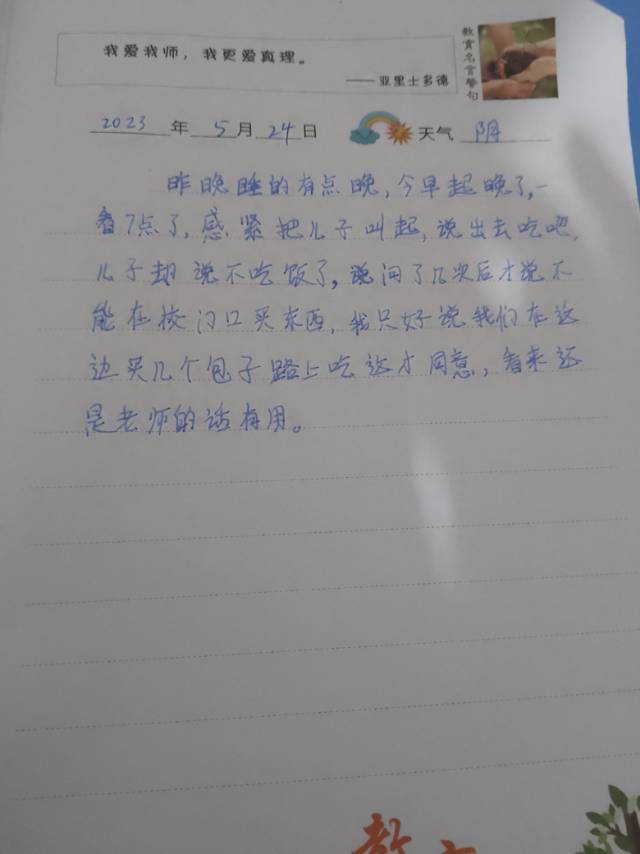 我爱我师，我更爱真理。
——亚里士多德
教育名言警句
2023年5月24日 天气 阴
昨晚睡的有点晚，今早起晚了，一
看7点了，感紧把儿子叫起，说出去吃吧，
儿子却说不吃饭了，说问了几次后才说不
能在校门口买东西，我只好说我们在这
边买几个包子路上吃这才同意，看来还
是老师的话有用。